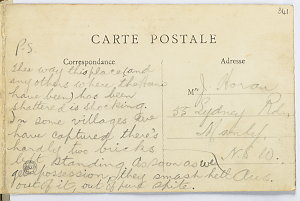 861
CARTE POSTALE
Correspondance
Adresse
P.S
The way this place (and
any others where the huns
have been) has been
shattered is shocking.
In some villages we
have captured there's
hardly two bricks
left standing. As soon as we
get possession, they smash hell
out of it, out of pure spite.
M J. Horan
55 Sydney Rd,
Manly
N.S.W.
Aus.